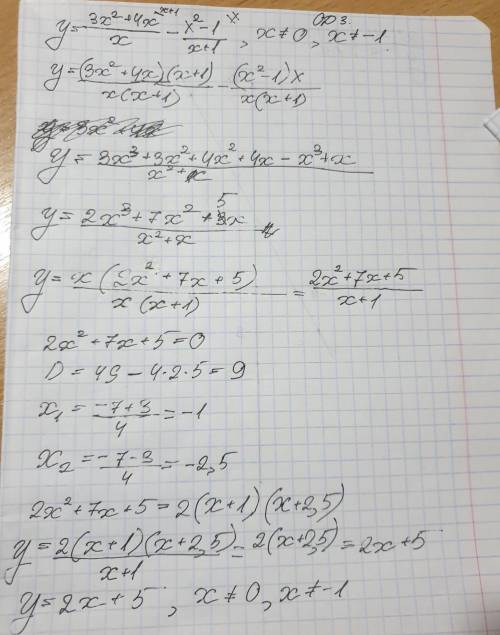 ОДЗ.
y = (3x² + 4x)/x ^x+1 − (x² − 1)/(x+1) ^x , x ≠ 0, x ≠ −1
y = (3x² + 4x)(x+1)/x(x+1) − (x² − 1)x/x(x+1)
y = (3x³ + 3x² + 4x² + 4x − x³ + x)/(x² + x)
y = (2x³ + 7x² + 5x)/(x² + x)
y = x(2x² + 7x + 5)/x(x+1) = (2x² + 7x + 5)/(x+1)
2x² + 7x + 5 = 0
D = 49 − 4·2·5 = 9
x₁ = (−7+3)/4 = −1
x₂ = (−7−3)/4 = −2,5
2x² + 7x + 5 = 2(x+1)(x+2,5)
y = 2(x+1)(x+2,5)/(x+1) = 2(x+2,5) = 2x+5
y = 2x + 5 , x ≠ 0, x ≠ −1